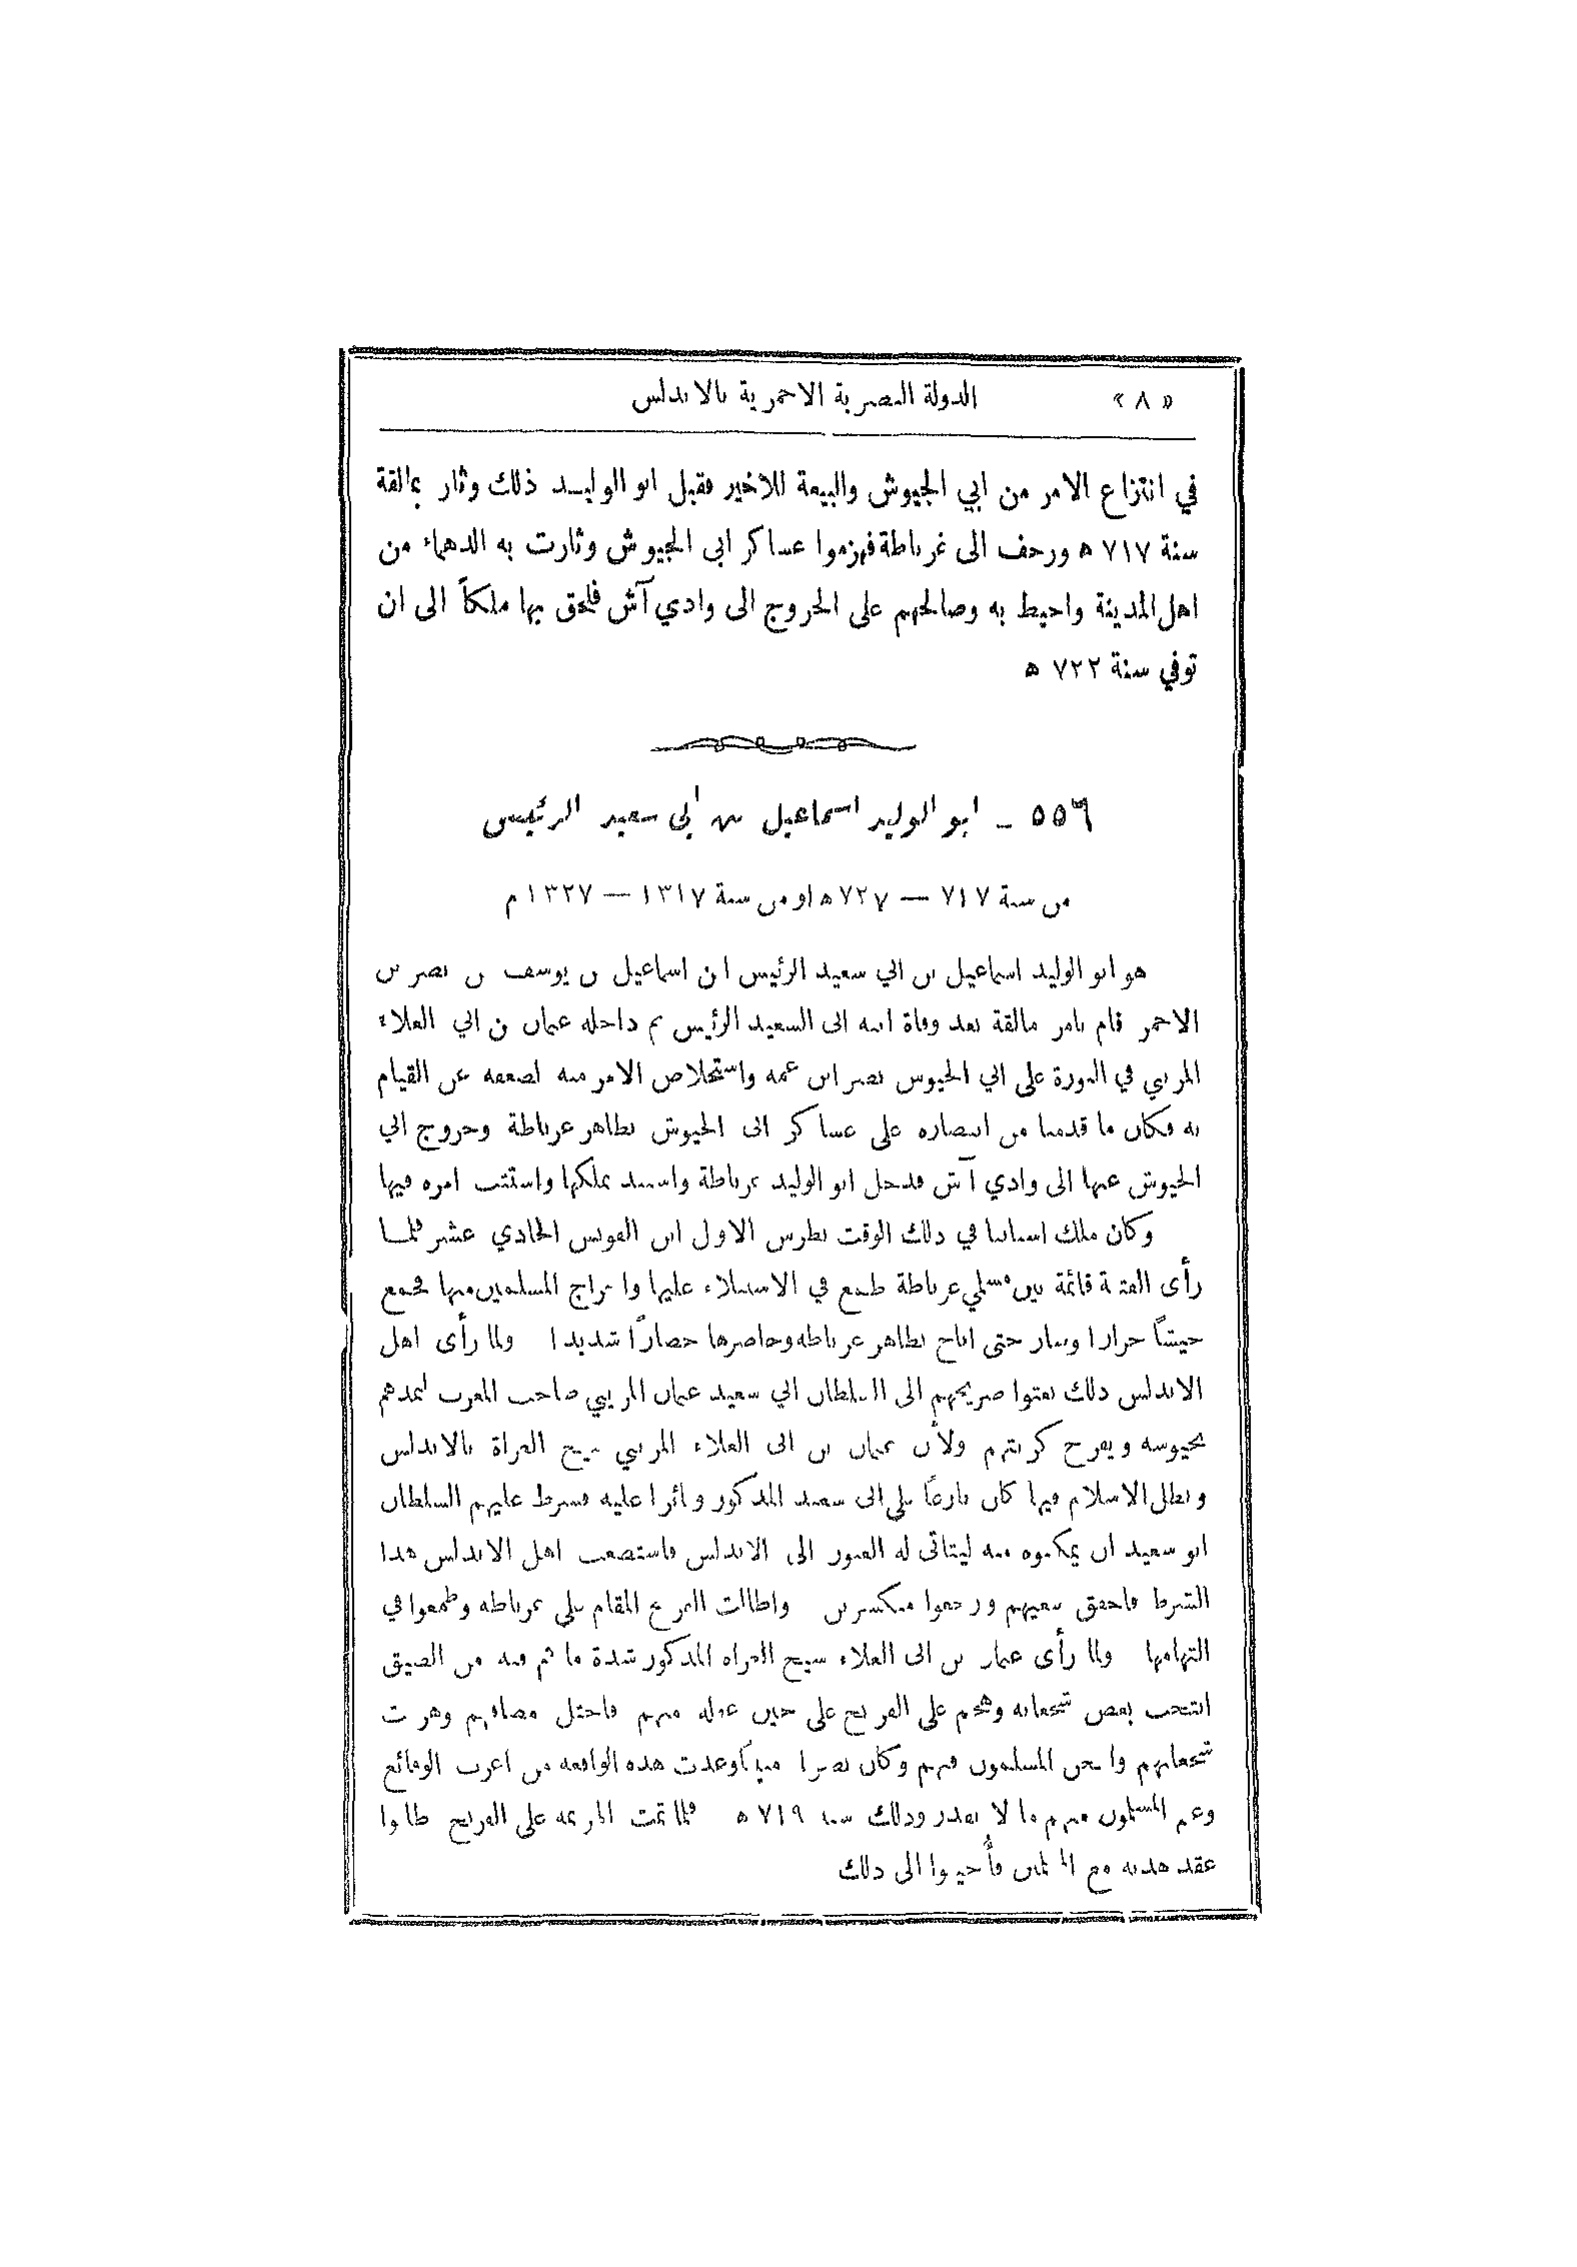 « ٨ » الدولة النصرية الاحمرية بالاندلس
في انتزاع الامر من ابي الجيوش والبيعة للاخير فقبل ابو الوليد ذلك وثار بمالقة
سنة ٧١٧ ه وزحف الى غرناطة فهزموا عساكر ابي الجيوش وثارت به الدهماء من
اهل المدينة واحيط به وصالحهم على الخروج الى وادي آش فلحق بها ملكاً الى ان
توفي سنة ٧٢٢ ه
٥٥٦ – ابو الوليد اسماعيل بن ابي سعيد الرئيس
من سنة ٧١٧ – ٧٢٧ ه او من سنة ١٣١٧ – ١٣٢٧ م
هو ابو الوليد اسماعيل بن ابي سعيد الرئيس ابن اسماعيل بن يوسف بن نصر بن
الاحمر قام بامر مالقة بعد وفاة ابيه ابي السعيد الرئيس ثم داخله عثمان بن ابي العلاء
المريني في الثورة على ابي الجيوش نصر ابن عمه واستخلاص الامر منه لضعفه عن القيام
به فكان ما قدمنا من انتصاره على عساكر ابي الجيوش بظاهر غرناطة وخروج ابي
الجيوش عنها الى وادي آش فدخل ابو الوليد غرناطة واستبد بملكها واستتب امره فيها
وكان ملك اسبانيا في ذلك الوقت بطرس الاول ابن الفونس الحادي عشر فلما
رأى الفتنة قائمة بين مسلمي غرناطة طمع في الاستيلاء عليها واخراج المسلمين منها فجمع
جيشاً جرارا وسار حتى اناخ بظاهر غرناطه وحاصرها حصارًا شديدا ولما رأى اهل
الاندلس ذلك بعثوا صريخهم الى السلطان ابي سعيد عثمان المريني صاحب المغرب ليمدهم
بجيوشه ويفرج كربتهم ولأن عثمان بن ابي العلاء المريني شيخ الغزاة بالاندلس
وبطل الاسلام فيها كان نازعًا على ابي سعيد المذكور وثائرا عليه فشرط عليهم السلطان
ابو سعيد ان يمكنوه منه ليتاتى له العبور الى الاندلس فاستصعب اهل الاندلس هذا
الشرط فاخفق سعيهم ورجعوا منكسرين واطالت الفرنج المقام على غرناطه وطمعوا في
التهامها ولما رأى عثمان بن ابي العلاء شيخ الغزاه المذكور شدة ما هم فيه من الضيق
انتخب بعض شجعانه وهجم على الفرنج على حين غفله منهم فاختل مصافهم وهربت
شجعانهم واثخن المسلمون فيهم وكان نصرا مبيناً وعدت هذه الواقعه من اغرب الوقائع
وغنم المسلمون منهم ما لا يقدر وذلك سنة ٧١٩ ه فلما تمت الهزيمه على الفرنج طلبوا
عقد هدنه مع المسلمين فأجيبوا الى ذلك